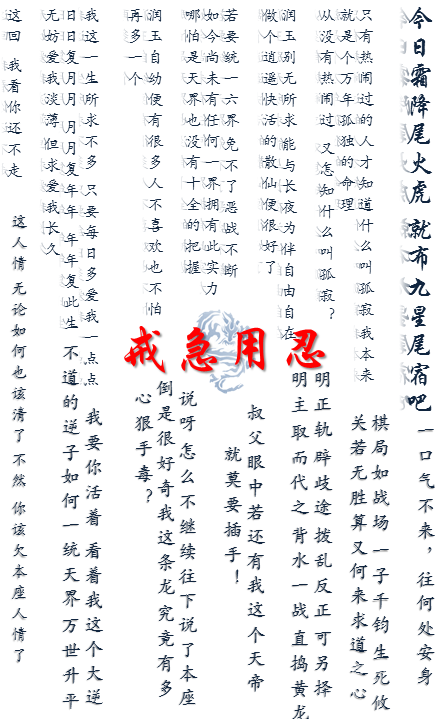 今日霜降尾火虎 就布九星尾宿吧
只有热闹过的人才知道什么叫孤寂我本来
就是个万年孤独的命理
从没有热闹过 又怎知什么叫孤寂？
润玉别无所求 能与长夜为伴自由自在
做个逍遥快活的散仙便很好了
若要统一六界免不了恶战不断
如今尚未有任何一界拥有此实力
哪怕是天界也没有十全的把握
润玉自幼便有很多人不喜欢也不怕
再多一个
我这一生所求不多 只要每日多爱我一点点
日日复月月 月月复年年 年年复此生
无妨爱我淡薄但求爱我长久
这回 我看你还不走
戒急用忍
一口气不来，往何处安身
棋局如战场 一子千钧生死攸
关若无胜算又何来求道之心
明正轨辟歧途 拨乱反正可另择
明主取而代之 背水一战 直捣黄龙
叔父眼中若还有我这个天帝
就莫要插手！
说呀怎么不继续往下说了本座
倒是很好奇我这条龙究竟有多
心狠手毒？
我要你活着 看着我这个大逆
不道的逆子如何一统天界万世升平
这人情 无论如何也该清了 不然 你该欠本座人情了